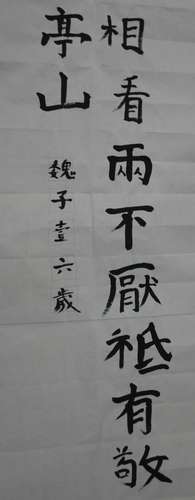 相看兩不厭祗有敬
亭山
魏子壹六歲